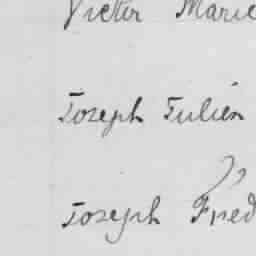 Victor Marie
Joseph Julien
Joseph Fred